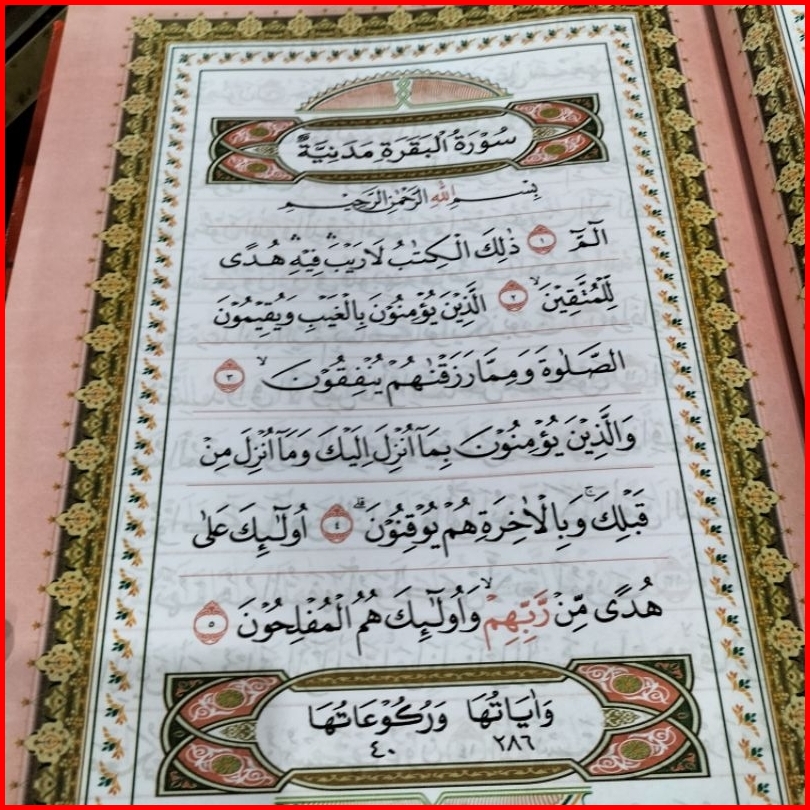 سُوْرَةُ الْبَقَرَةِ مَدَنِيَّةٌ
بِسْمِ اللهِ الرَّحْمٰنِ الرَّحِيْمِ
الٓمّٓ ۝١ ذٰلِكَ الْكِتٰبُ لَا رَيْبَ ۛ فِيْهِ ۛ هُدًى
لِّلْمُتَّقِيْنَ ۙ ۝٢ الَّذِيْنَ يُؤْمِنُوْنَ بِالْغَيْبِ وَيُقِيْمُوْنَ
الصَّلٰوةَ وَمِمَّا رَزَقْنٰهُمْ يُنْفِقُوْنَ ۙ ۝٣
وَالَّذِيْنَ يُؤْمِنُوْنَ بِمَآ اُنْزِلَ اِلَيْكَ وَمَآ اُنْزِلَ مِنْ
قَبْلِكَ ۚ وَبِالْاٰخِرَةِ هُمْ يُوْقِنُوْنَ ۗ ۝٤ اُولٰٓئِكَ عَلٰى
هُدًى مِّنْ رَّبِّهِمْ ۙ وَاُولٰٓئِكَ هُمُ الْمُفْلِحُوْنَ ۝٥
وَاٰيَاتُهَا وَرُكُوْعَاتُهَا
٢٨٦ ٤٠